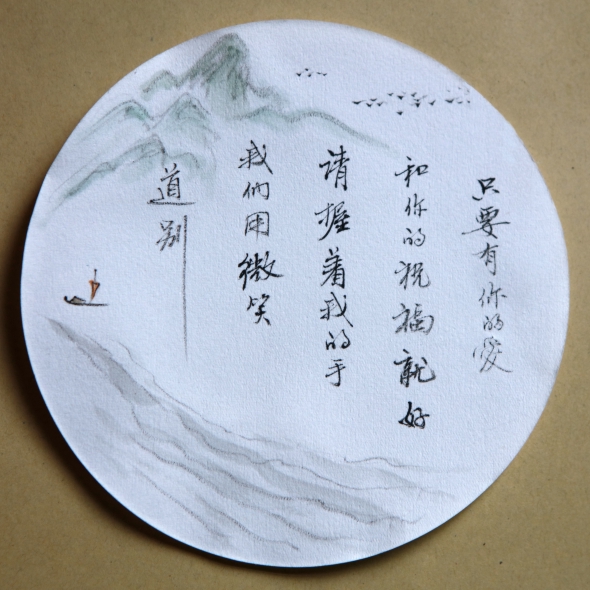 只要有你的爱
和你的祝福就好
请握着我的手
我们用微笑
道别